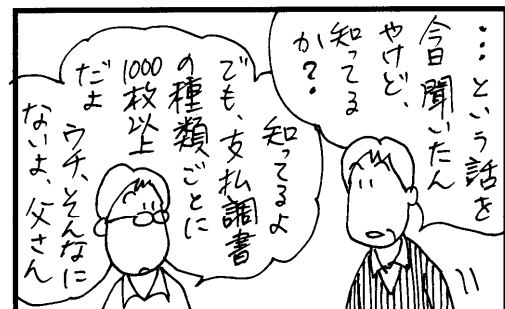 …という話を
今日聞いたん
やけど、
知ってる
か?
知ってるよ
でも、支払調書
の種類ごとに
1000枚以上
だよ
ウチ、そんなに
ないよ、父さん